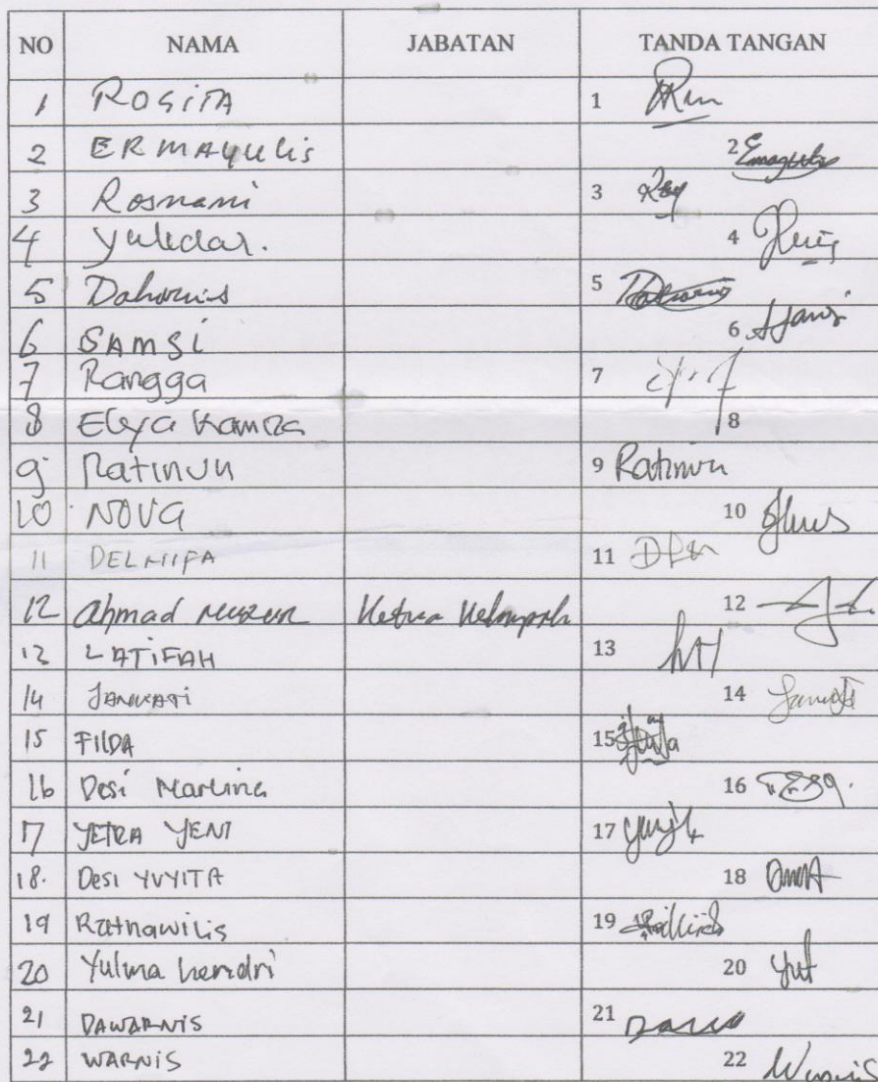 NO NAMA JABATAN TANDA TANGAN
1 ROSiTA 1
2 ERMAYULis 2
3 Rosnani 3
4 Yulidar. 4
5 Daharnis 5
6 SAMSi 6
7 Rangga 7
8 Elya 8
9 Ratinun 9 Ratinun
10 NOVA 10
11 DELMIFA 11
12 Ahmad Ketua Kelompok 12
13 LATiFAH 13
14 14
15 FILDA 15
16 Desi Marlina 16
17 YETRA YENI 17
18. Desi YUYITA 18
19 Ratnawilis 19
20 Yulma hendri 20
21 DAWARNIS 21
22 WARNiS 22